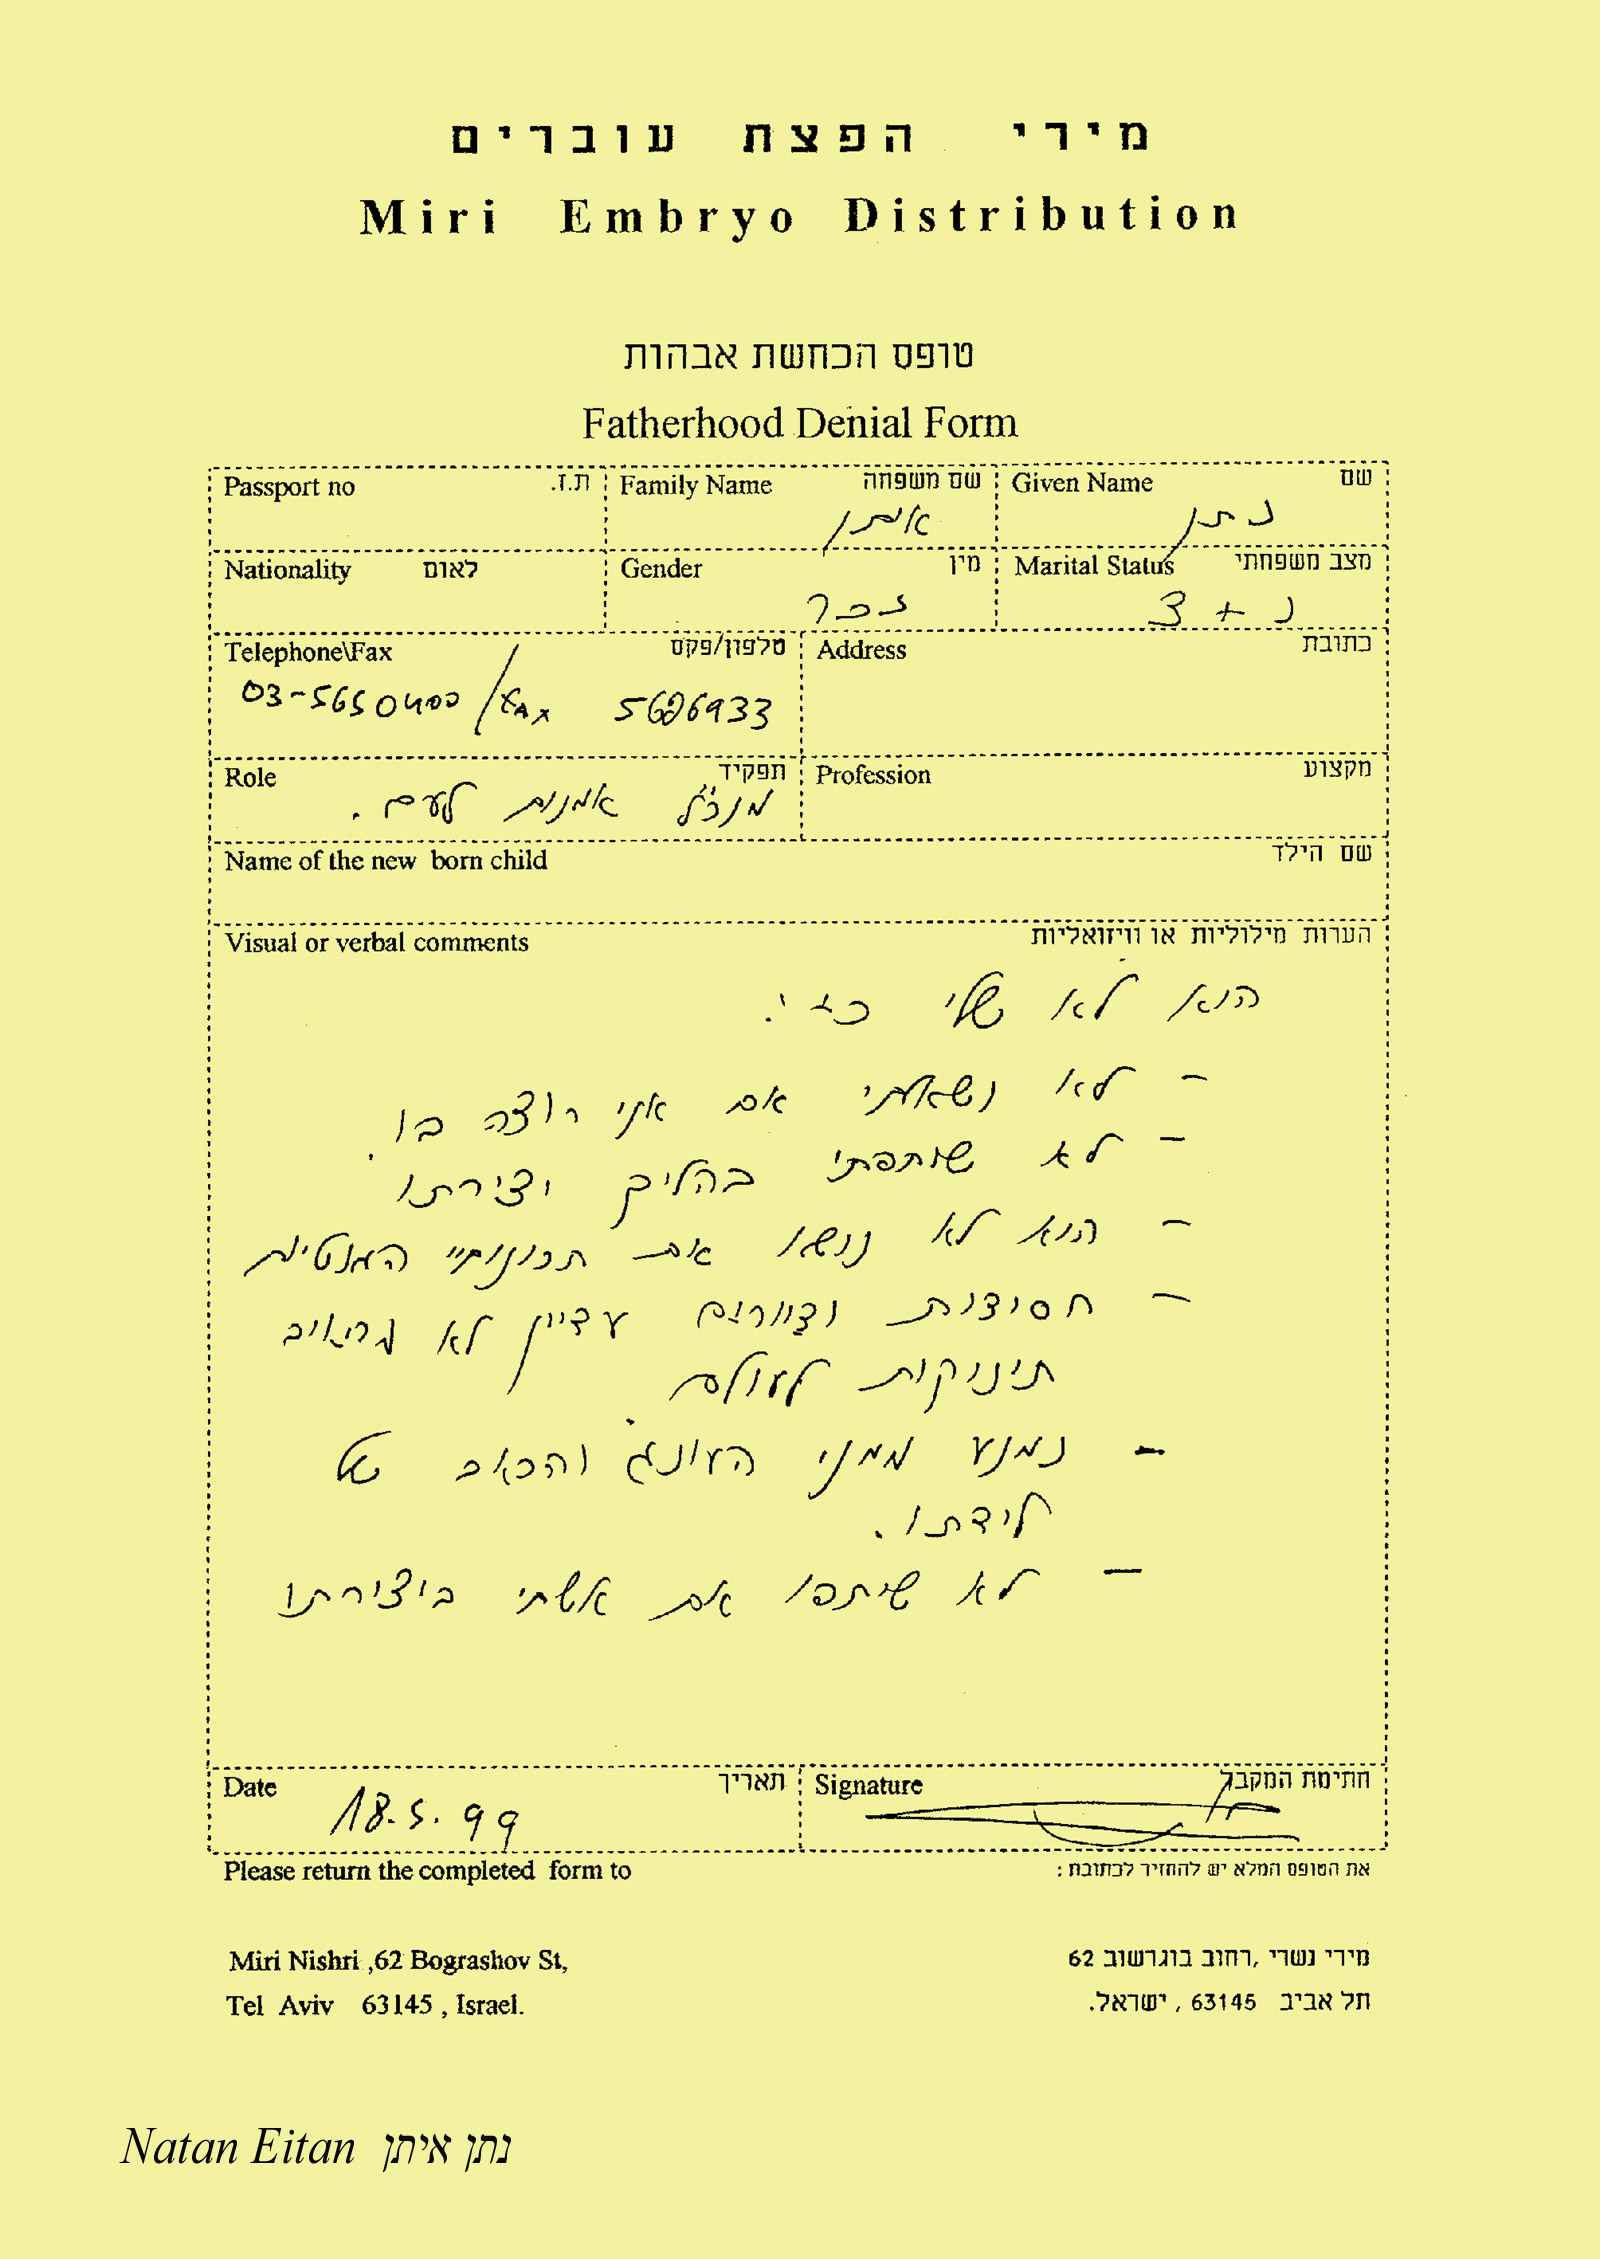 מירי הפצת עוברים
Miri Embryo Distribution
טופס הכחשת אבהות
Fatherhood Denial Form
Passport no ת.ז.
Family Name שם משפחה
Given Name שם
איתן
נתן
Nationality לאום
Gender מין
Marital Status מצב משפחתי
זכר
נ + 3
Telephone\Fax טלפון/פקס
Address כתובת
03-5650400/Fax 5686933
Role תפקיד
Profession מקצוע
מנכ"ל אמנות לעם.
Name of the new born child שם הילד
Visual or verbal comments הערות מילוליות או וויזואליות
הוא לא שלי כי:
– לא נשאלתי אם אני רוצה בו.
– לא שותפתי בהליך יצירתו
– הוא לא נושא את תכונותיי הגנטיות
– חסידות עדיין לא מביאים
תינוקות לעולם.
– נמנע ממני העונג והכאב של
לידתו.
– לא שיתפו את אשתי ביצירתו
Date תאריך
Signature חתימת המקבל
18.5.99
Please return the completed form to
את הטופס המלא יש להחזיר לכתובת :
Miri Nishri ,62 Bograshov St,
מירי נשרי ,רחוב בוגרשוב 62
Tel Aviv 63145 , Israel.
תל אביב 63145 , ישראל.
Natan Eitan נתן איתן